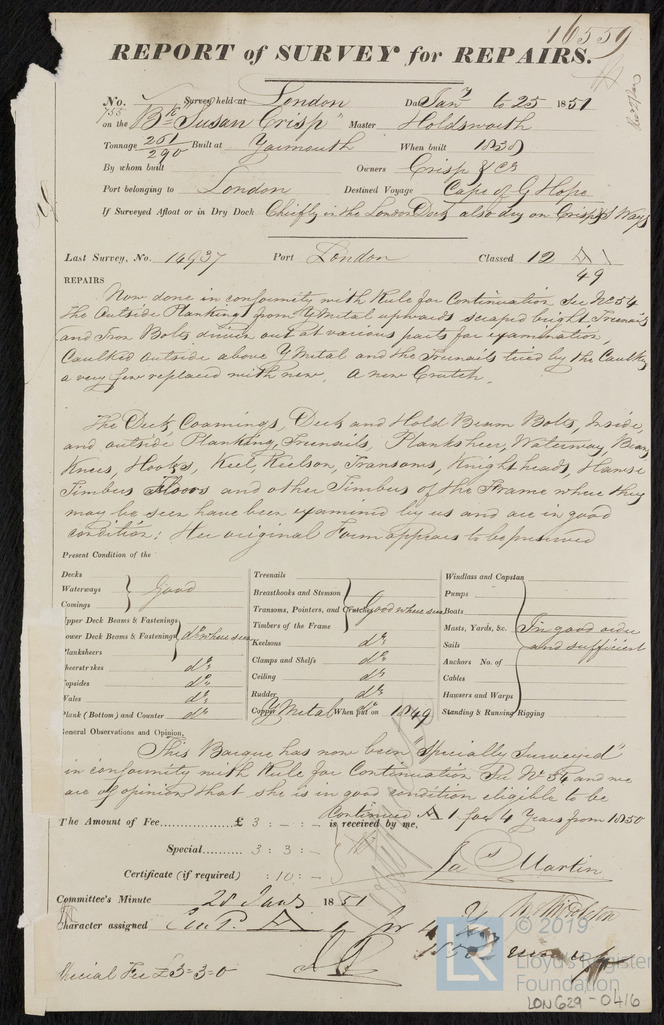 16559
REPORT of SURVEY for REPAIRS.
No. 755 Survey held at London Date Jany 6 to 25 1851
on the Bk "Susan Crisp" Master Holdsworth
Tonnage 261/290 Built at Yarmouth When built 1838
By whom built Owners Crisp & Co
Port belonging to London Destined Voyage Cape of G Hope
If Surveyed Afloat or in Dry Dock Chiefly in the London Dock also dry on Crisp's Ways
Last Survey, No. 14937 Port London Classed 12 A 1
49
REPAIRS
Now done in conformity with Rule for Continuation Sec No 54
The Outside Planking from Y Metal upwards scraped bright Treenails
and Iron Bolts driven out at various parts for examination,
Caulked outside above Y Metal and the Treenails tried by the Caulkers
a very few replaced with new. A new Crutch.
The Deck, Coamings, Deck and Hold Beam Bolts, Inside,
and outside Planking, Treenails, Planksheer, Waterway, Beams
Knees, Hooks, Keel, Keelson, Transoms, Knightheads, Hawse
Timbers Floors and other Timbers of the Frame where they
may be seen have been examined by us and are in good
condition: Her original Form appears to be preserved
Present Condition of the
Decks
Waterways Good
Comings
pper Deck Beams & Fastenings
ower Deck Beams & Fastenings do where seen
lanksheers
heerstrakes do
opsides do
Vales do
lank (Bottom) and Counter do
Treenails
Breasthooks and Stemson
Transoms, Pointers, and Crutches Good where seen
Timbers of the Frame
Keelsons do
Clamps and Shelfs do
Ceiling do
Rudder do
Copper Y Metal When put on do 1849
Windlass and Capstan
Pumps
Boats
Masts, Yards, &c. In good order
Sails and sufficient
Anchors No. of
Cables
Hawsers and Warps
Standing & Running Rigging
eneral Observations and Opinion,
This Barque has now been "Specially Surveyed"
in conformity with Rule for Continuation Sec No 54 and we
are of opinion that she is in good condition eligible to be
Continued A 1 for 4 Years from 1850
The Amount of Fee £ 3 : - : - is received by me,
Special 3 : 3 : -
Certificate (if required) : 10 : -
Jas Martin
Committee's Minute 28 Jany 1851
Character assigned A 1 for 4 Y
pecial Fee £3=3=0
LR © 2019
Lloyd's Register
Foundation
LON629-0416